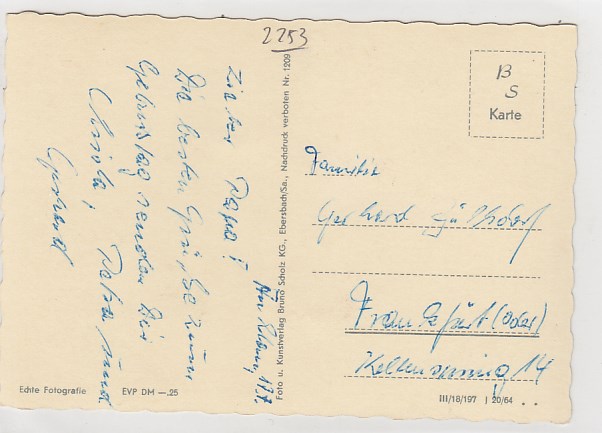 2253
Lieber Papa!
Die besten Grüße zum
Geburtstag senden Dir
Ursula, Petra und
Gerhard
Foto u. Kunstverlag Bruno Scholz KG., Ebersbach/Sa., Nachdruck verboten Nr. 1209
B
S
Karte
Familie
Gerhard
Frankfurt (Oder)
14
Echte Fotografie EVP DM —.25
III/18/197 J 20/64